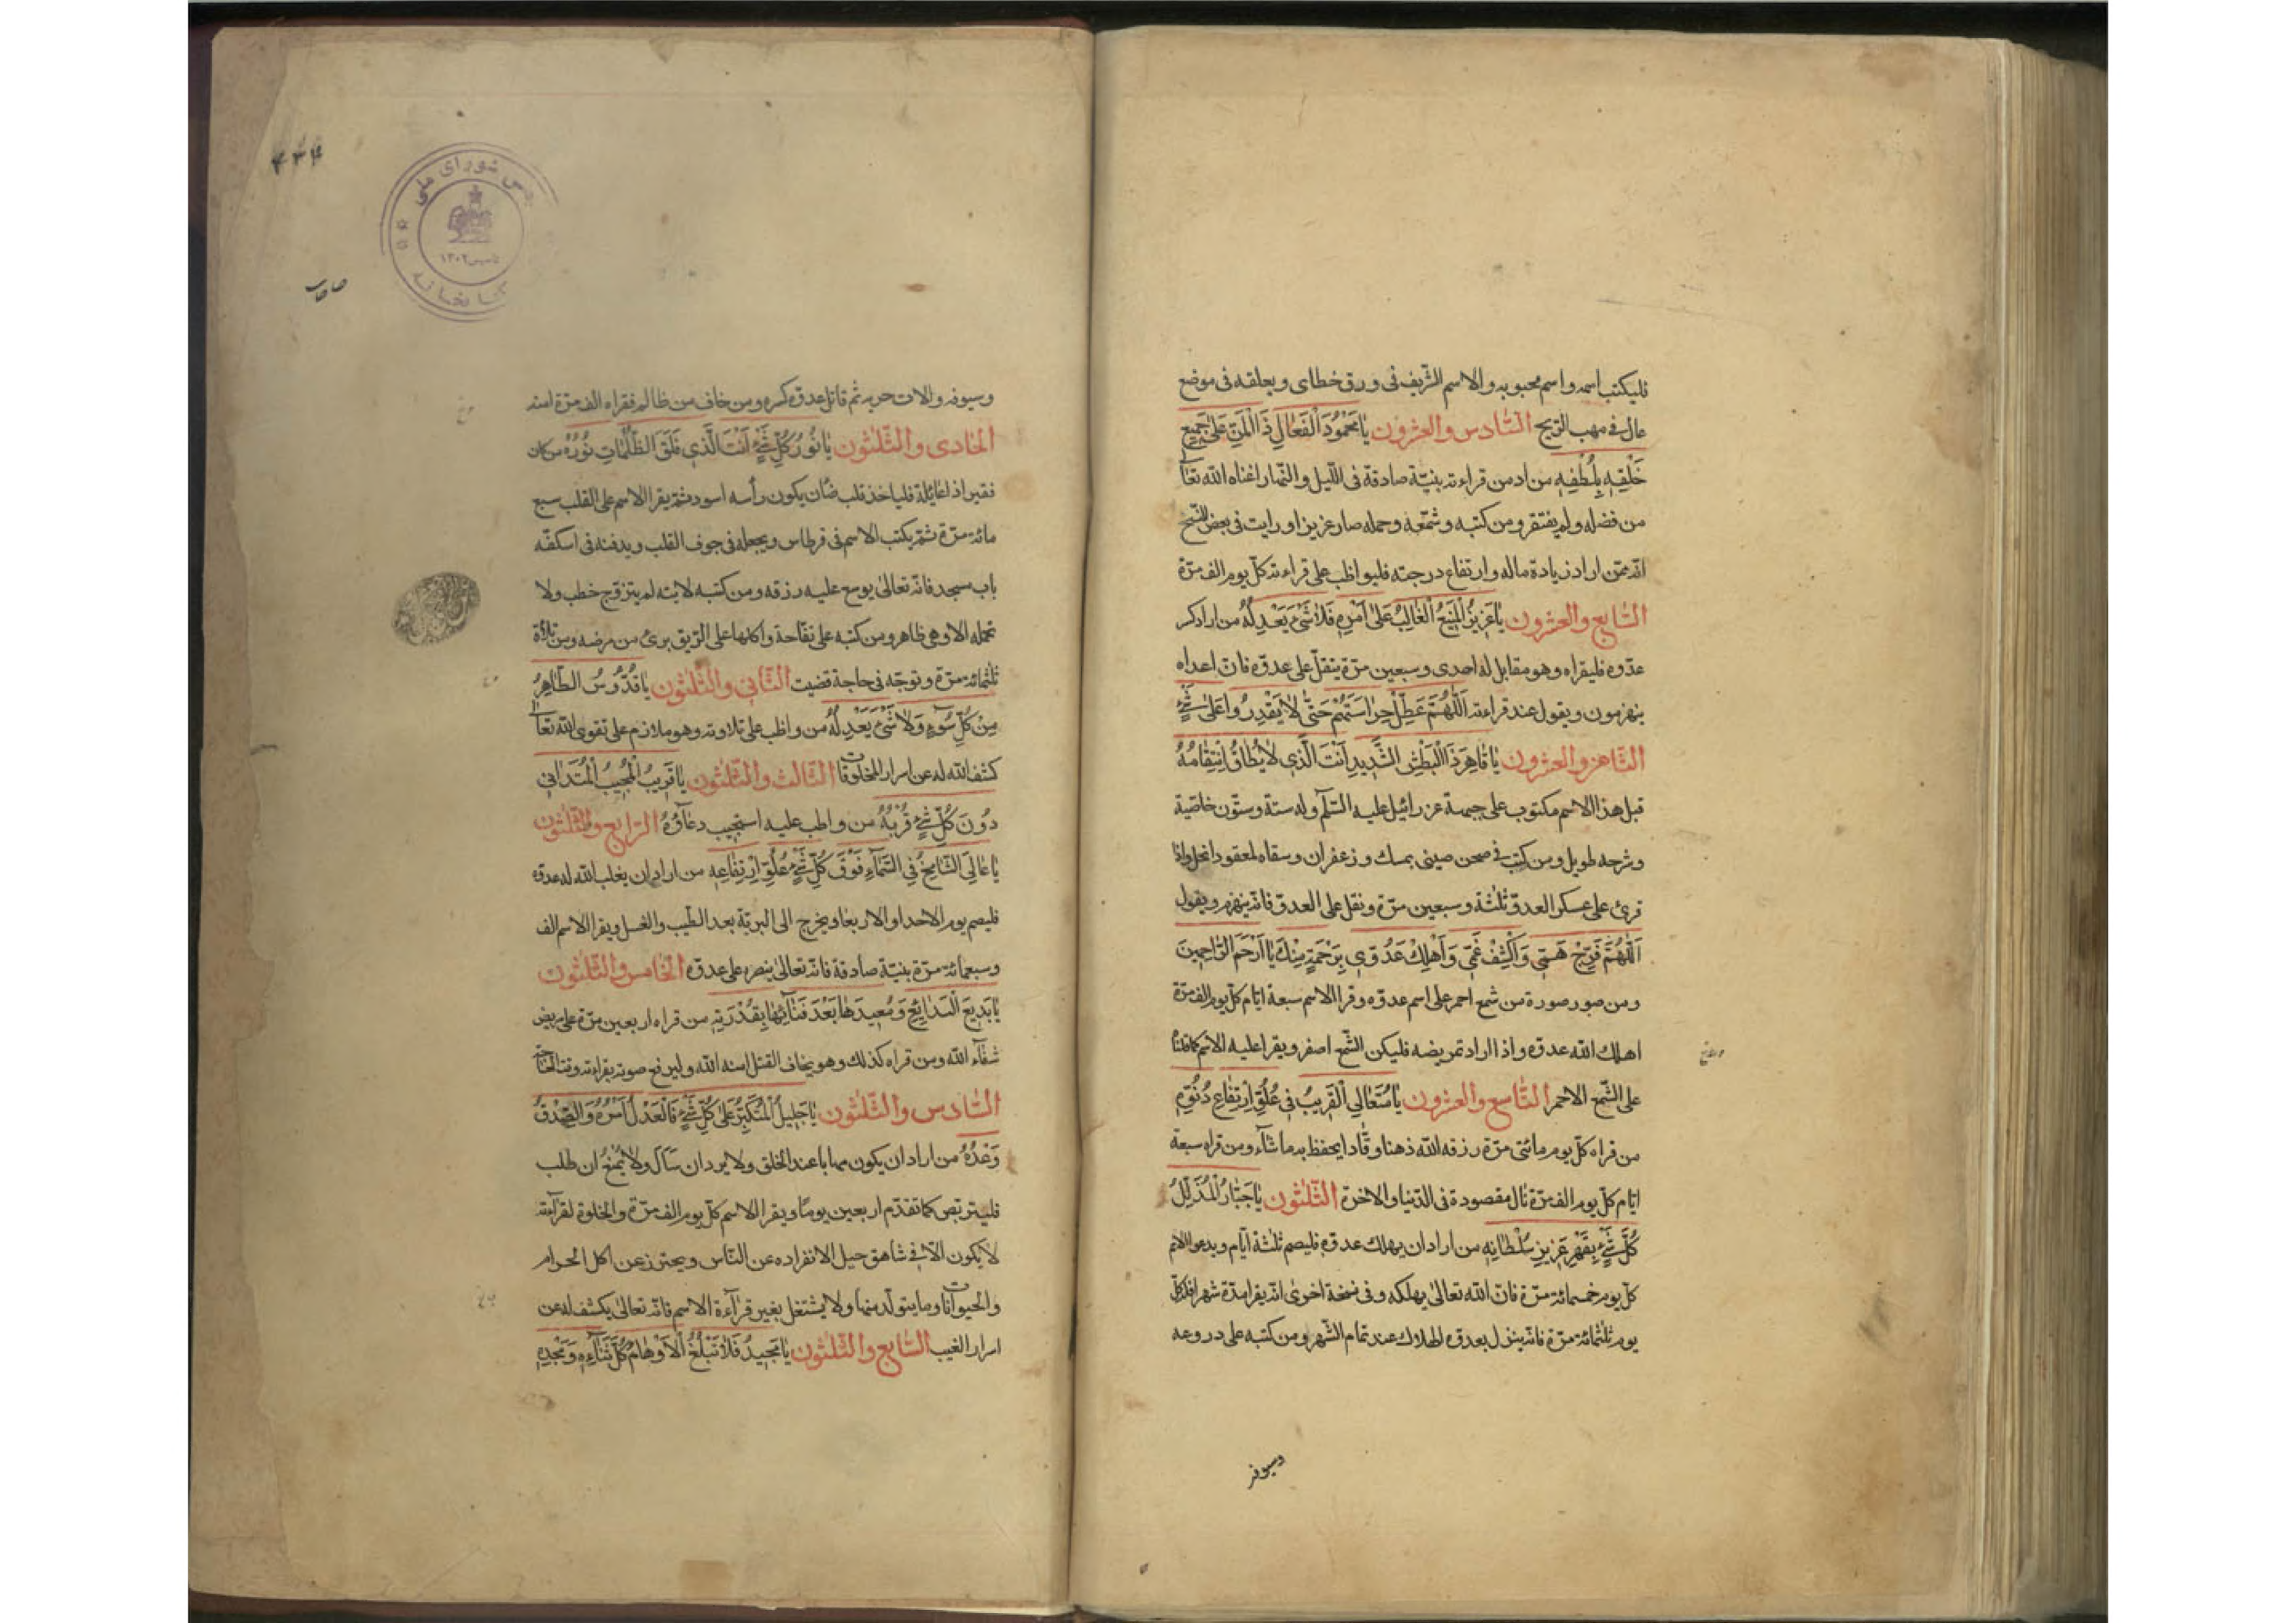 فليكتب اسمه واسم محبوبه والاسم الشريف فى ورق خطاى ويعلقه فى موضع
عال فى مهب الريح السَّادس والعشرون يَا مَحْمُودَ الْفَعَالِ ذَا الْمَنِّ عَلىٰ جَمِيعِ
خَلْقِهِ بِلُطْفِهِ من ادمن قراءته بنيّة صادقة فى الليل والنّهار اغناه الله تعا
من فضله ولم يفتقر ومن كتبه وشمّعه وحمله صار عزيزا ورايت فى بعض النسخ
انّه ممّن اراد زيادة ماله وارتفاع درجته فليواظب على قراءته كلّ يوم الف مرّة
السَّابع والعشرون يَا عَزِيزُ الْمَنِيعُ الْغَالِبُ عَلىٰ اَمْرِهِ فَلَا شَىْءَ يَعْدِلُهُ من اراد كر
عدّوه فليقراه وهو مقابل له احدى وسبعين مرّة ينقل على عدوّه فانّ اعداه
ينهزمون ويقول عند قراءته اَللّٰهُمَّ عَطِّلْ حِرَاسَتَهُمْ حَتّٰى لَا يَقْدِرُوا عَلىٰ شَىْءٍ
الثّامن والعشرون يَا قَاهِرُ ذَا الْبَطْشِ الشَّدِيدِ اَنْتَ الَّذِى لَا يُطَاقُ اِنْتِقَامُهُ
قيل هذا الاسم مكتوب على جبهة عزرائيل عليه السّلم وله ستة وستّون خاصّية
وشرحه طويل ومن كتب فى صحن صينى بمسك وزعفران وسقاه لمعقود انحل واذا
قرئ على عسكر العدوّ ثلثة وسبعين مرّة ونقل على العدوّ فانّه ينهزم ويقول
اَللّٰهُمَّ فَرِّجْ هَمّى وَاكْشِفْ غَمّى وَاَهْلِكْ عَدُوّى بِرَحْمَةٍ مِنْكَ يَا اَرْحَمَ الرَّاحِمِينَ
ومن صور صورة من شمع احمر على اسم عدوّه وقرا الاسم سبعة ايّام كلّ يوم الف مرّة
اهلك الله عدوّه واذا اراد تمريضه فليكن الشّمع اصفر ويقرا عليه الاسم كما قلنا
على الشّمع الاحمر التّاسع والعشرون يَا مُتَعَالِى الْقَرِيبُ فِى عُلُوِّ اِرْتِفَاعِ دُنُوِّهِ
من قراه كلّ يوم مائتى مرّة رزقه الله ذهنا وقّادا يحفظ به ما شآء ومن قراه سبعة
ايّام كلّ يوم الف مرّة نال مقصوده فى الدّنيا والاخرة الثّلثون يَا جَبّارُ الْمُذَلِّلُ
كُلَّ شَىْءٍ بِقَهْرِ عَزِيزِ سُلْطَانِهِ من اراد ان يهلك عدوّه فليصم ثلثة ايّام ويدعو الاسم
كلّ يوم خمسمائة مرّة فانّ الله تعالىٰ يهلكه وفى نسخة اخرىٰ انّه يقرا مدّة شهر افلكلّ
يوم ثلثمائة مرّة فانّه ينزل بعدوّه الهلاك عند تمام الشّهر ومن كتبه على دروعه
وسيوفه
٤٣٤
مجلس شوراى ملى
تاسيس ١٣٠٢
كتابخانه
وسيوفه والات حربه ثم قاتل عدوّه كسره ومن خاف من ظالم فقراه الف مرّة امنه
الحادى والثّلثون يَا نُورَ كُلِّ شَىْءٍ اَنْتَ الَّذِى فَلَقَ الظُّلُمَاتِ نُورُهُ من كان
فقيرا ذا عائلة فلياخذ قلب ضان يكون رأسه اسود ثم يقرا الاسم على القلب سبع
مائة مرّة ثمّ يكتب الاسم فى قرطاس ويجعله فى جوف القلب ويدفنه فى اسكفّه
باب مسجد فانّه تعالىٰ يوسع عليه رزقه ومن كتبه لابنه لم يتزوّج خطب ولا
تحمله الا وهى ظاهر ومن كتبه على تفّاحة واكلها على الرّيق برئ من مرضه ومن تلاه
ثلثمائة مرّة وتوجّه فى حاجة قضيت الثّانى والثّلثون يَا قُدُّوسُ الطَّاهِرُ
مِنْ كُلِّ سُوءٍ وَلَا شَىْءَ يَعْدِلُهُ من واظب على تلاوته وهو ملازم على تقوى الله تعا
كشف الله له عن اسرار المخلوقات الثّالث والثّلثون يَا قَرِيبُ الْمُجِيبُ الْمُتَدَانِى
دُونَ كُلِّ شَىْءٍ قُرْبُهُ من واظب عليه استجيب دعآؤهُ الرّابع والثّلثون
يَا عَالِى الشَّامِخُ فِى السَّمَآءِ فَوْقَ كُلِّ شَىْءٍ عُلُوُّ اِرْتِفَاعِهِ من اراد ان يغلب الله له عدوّه
فليصم يوم الاحد او الاربعا ويخرج الى البريّة بعد الطّيب والغسل ويقرا الاسم الف
وسبعمائة مرّة بنيّة صادقة فانّه تعالىٰ ينصره على عدوّه الخامس والثّلثون
يَا بَدِيعَ الْبَدَايِعِ وَمُعِيدَهَا بَعْدَ فَنَآئِهَا بِقُدْرَتِهِ من قراه اربعين مرّة على مريض
شفاء الله ومن قراه كذلك وهو يخاف القتل امنه الله وليرفع صوته بقراءته وقت الحاجة
السّادس والثّلثون يَا جَلِيلُ الْمُتَكَبِّرُ عَلىٰ كُلِّ شَىْءٍ فَالْعَدْلُ اَمْرُهُ وَالصِّدْقُ
وَعْدُهُ من اراد ان يكون مهابا عند الخلق ولا يرد ان سَأل ولا يُمنعُ ان طلب
فليتربّص كما تقدّم اربعين يومًا ويقرا الاسم كلّ يوم الف مرّة والخلوة لقرآءته
لا يكون الّا فى شاهق جبل لانفراده عن النّاس ويحترز عن اكل الحرام
والحيوانات وما يتولّد منها ولا يشتغل بغير قرآءة الاسم فانّه تعالىٰ يكشف له عن
اسرار الغيب السّابع والثّلثون يَا مَجِيدُ فَلَا تَبْلُغُ الْاَوْهَامُ كُلَّ ثَنَآءِهِ وَمَجْدِهِ